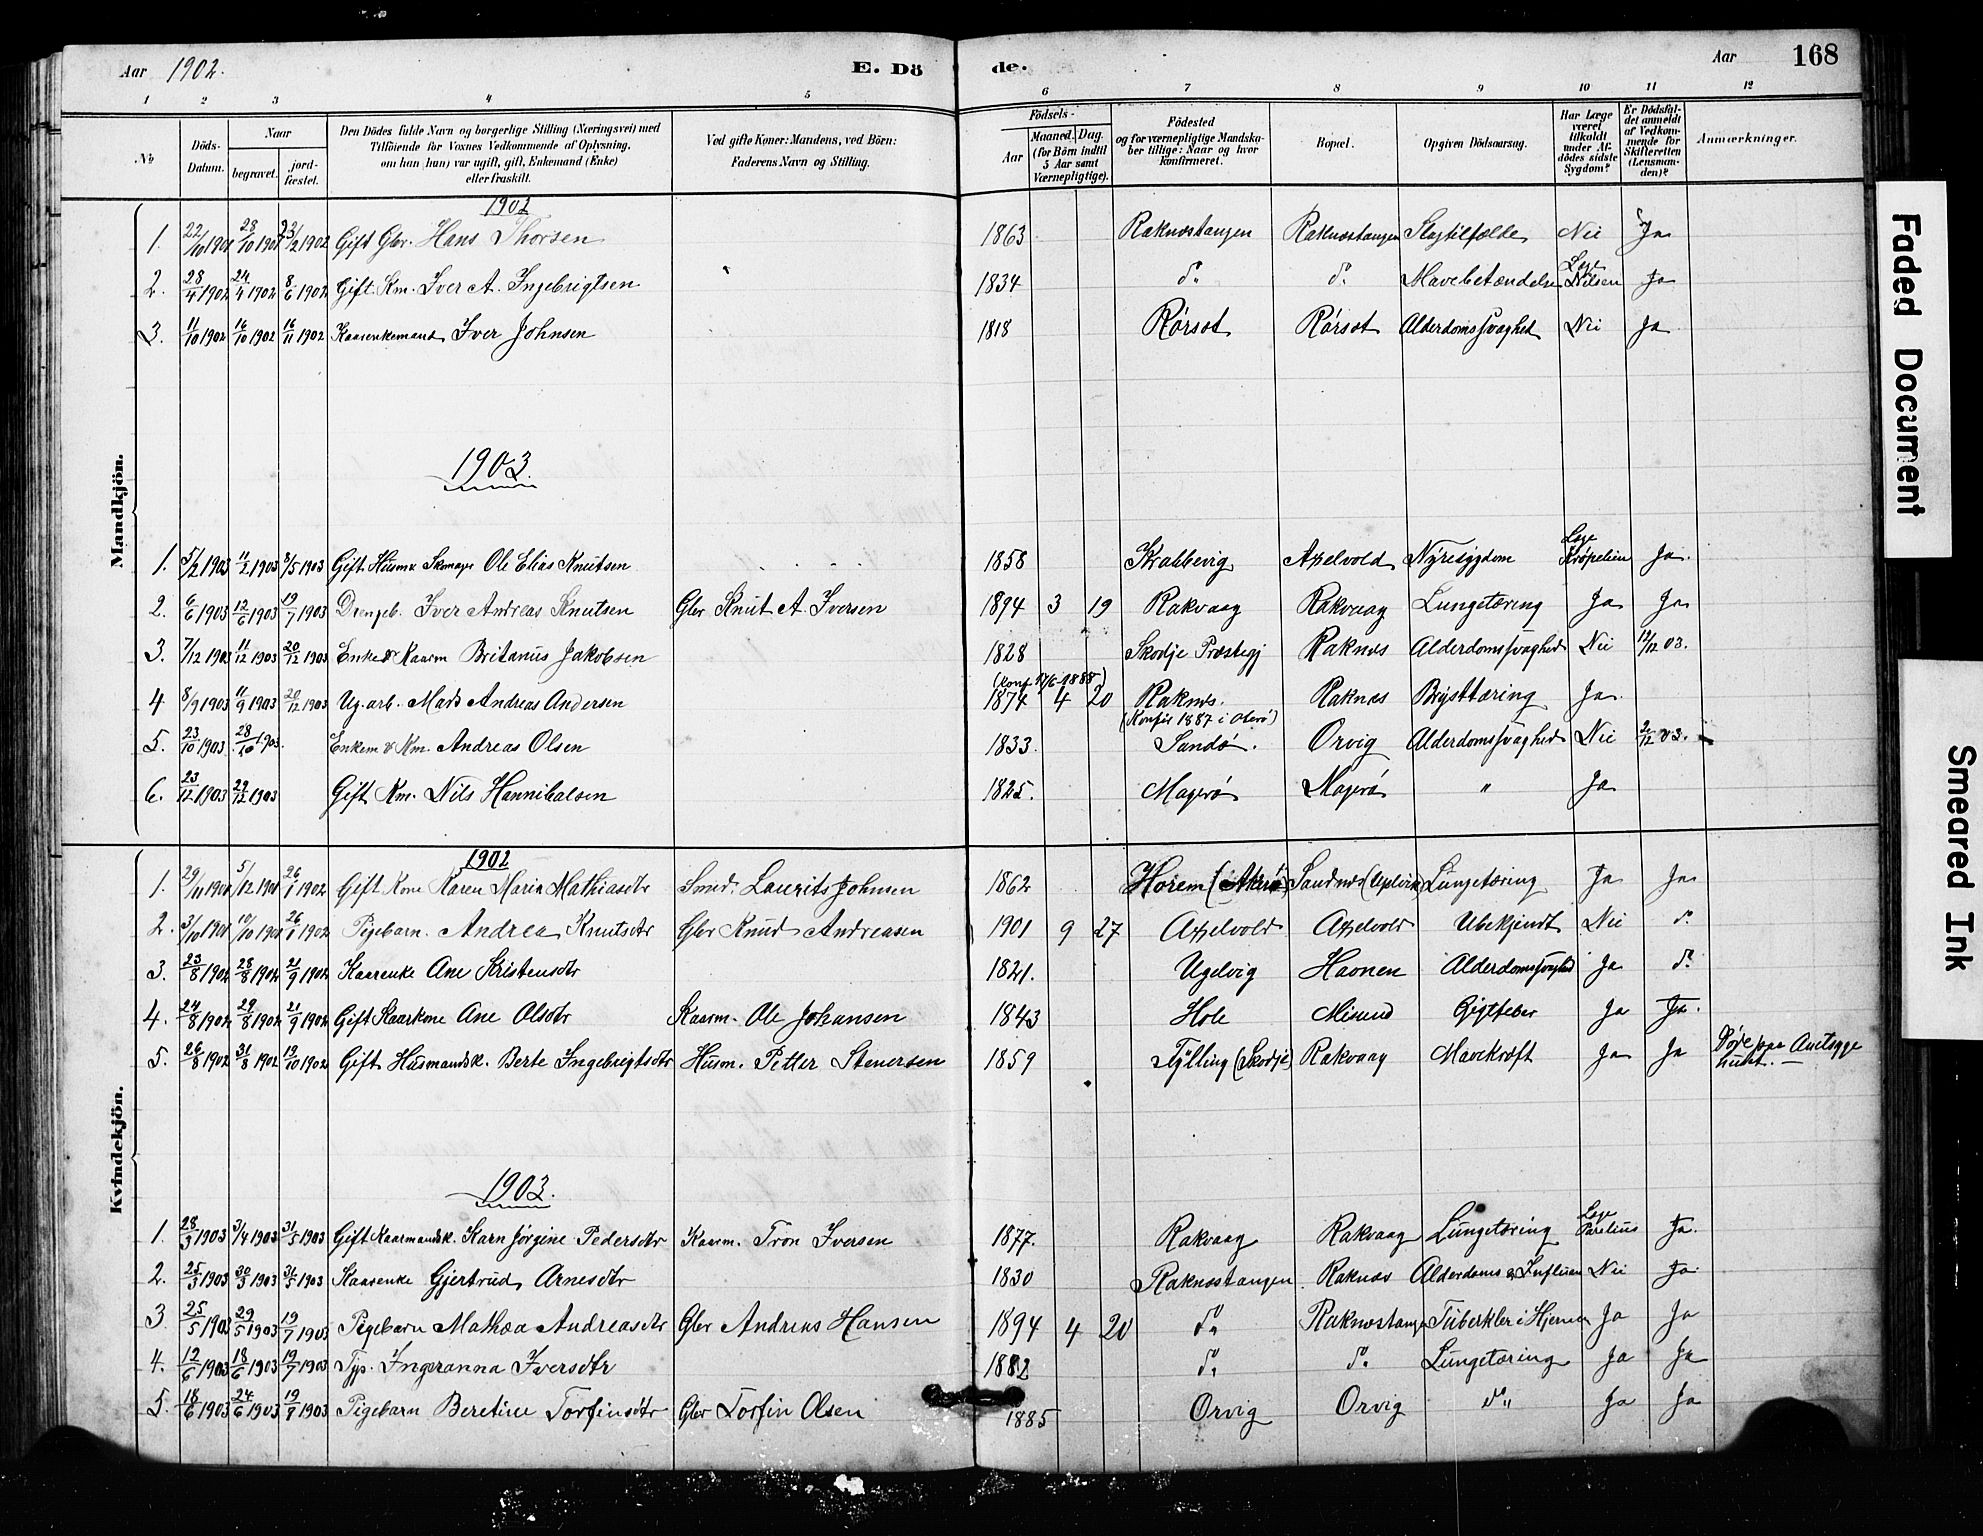 Aar 1902. E. Dö de. Aar 168
1 2 3 4 5 6 7 8 9 10 11 12
No
Döds-Datum.
Naar
begravet.
jord-fæstet.
Den Dödes fulde Navn og borgerlige Stilling (Næringsvei) med
Tilföiende for Voxnes Vedkommende af Oplysning,
om han (hun) var ugift, gift, Enkemand (Enke)
eller fraskilt.
Ved gifte Koner: Mandens, ved Börn:
Faderens Navn og Stilling.
Födsels-
Aar
Maaned.
Dag.
(for Börn indtil
5 Aar samt
Værnepligtige).
Födested
og for værnepligtige Mandska-
ber tillige: Naar og hvor
konfirmeret.
Bopæl.
Opgiven Dödsaarsag.
Har Læge
været
tilkaldt
under Af-
dödes sidste
Sygdom?
Er Dödsfal-
det anmeldt
af Vedkom-
mende for
Skifteretten
(Lensman-
den)?
Anmærkninger.
Mandkjön.
1902
1. 22/10 1901 28/10 1901 23/2 1902 Gift Gbr. Hans Thorsen 1863 Raknæstangen Raknæstangen Slagtilfælde Nei Ja
2. 28/4 1902 24/4 1902 8/6 1902 Gift Km. Iver A. Ingebrigtsen 1834 do do Mavebetændelse Læge Nilsen Ja
3. 11/10 1902 16/10 1902 16/11 1902 Kaarenkemand Iver Johnsen 1818 Rörsæt Rörsæt Alderdomssvaghed Nei Ja
1903.
1. 5/2 1903 11/2 1903 3/5 1903 Gift Husm Skomager Ole Elias Knutsen 1858 Krabbevig Axelvold Nyresygdom Læge Kröpelin Ja.
2. 6/6 1903 12/6 1903 19/7 1903 Drengeb. Iver Andreas Knutsen Gbr Knut A. Iversen 1894 3 19 Rakvaag Rakvaag Lungetæring Ja Ja
3. 7/12 1903 11/12 1903 20/12 1903 Enkem Kaarm Britanus Jakobsen 1828 Skodje Præstegj Raknæs Alderdomssvaghed Nei 12/12 03.
(Konf 17/6 1888)
4 8/9 1903 11/9 1903 20/12 1903 Ug. arb. Mads Andreas Andersen 1874 4 20 Raknæs. Raknæs Brysttæring Ja.
5. 23/10 1903 28/10 1903. Enkem & Km. Andreas Olsen 1833. Sandö. Orvig Alderdomssvaghed Nei 2/12 03.
6. 23/12 1903 29/12 1903 Gift Km. Nils Hannibalsen 1825. Magerö Magerö " Ja
Kvindekjön.
1902
1. 29/11 1901 5/12 1901 26/1 1902 Gift Kone Karen Maria Mathiasdtr Smed. Laurits Johnsen 1862 Horem (Akerö) Sandnæs Lungetæring Ja Ja
2. 3/10 1901 10/10 1901 26/1 1902 Pigebarn. Andrea Knutsdtr Gbr Knud Andreasen 1901 9 27 Axelvold Axelvold Ubekjendt Nei do
3. 23/8 1902 28/8 1902 21/9 1902 Kaarenke Ane Kristensdtr 1821. Ugelvig Havnen Alderdomssvaghed Ja do
4. 24/8 1902 29/8 1902 21/9 1902 Gift Kaarkone Ane Olsdtr Kaarm. Ole Johansen 1843 Hole Misund Gigtfeber Ja Ja.
5. 26/8 1902 31/8 1902 19/10 1902 Gift Husmandsk. Berte Ingebrigtsdtr Husm. Petter Stenersen 1859 Fylling (Skodje) Rakvaag Mavekræft Ja Ja
1903.
1. 28/3 1903 3/4 1903 31/5 1903 Gift Kaarmandsk. Karn Jörgine Pedersdtr Kaarm. Tron Iversen 1877. Rakvaag Rakvaag Lungetæring Læge Parelius Ja.
2. 25/3 1903 30/3 1903 31/5 1903 Kaarenke Gjertrud Arnesdtr 1830 Raknæstangen Raknæs Alderdoms & Influen Nei Ja.
3 25/5 1903 29/5 1903 19/7 1903 Pigebarn Mathea Andreasdtr Gbr Andreas Hansen 1894 4 20 do Raknæstangen Tuberkler i Hjernen Ja Ja
4. 12/6 1903 18/6 1903 19/7 1903 Typ. Ingeranna Iversdtr 1882 do do Lungetæring Ja Ja
5. 18/6 1903 24/6 1903 19/8 1903 Pigebarn Beretine Torfinsdtr Gbr Torfin Olsen 1885 Orvig Orvig do Ja Ja
Faded Document
Smeared Ink